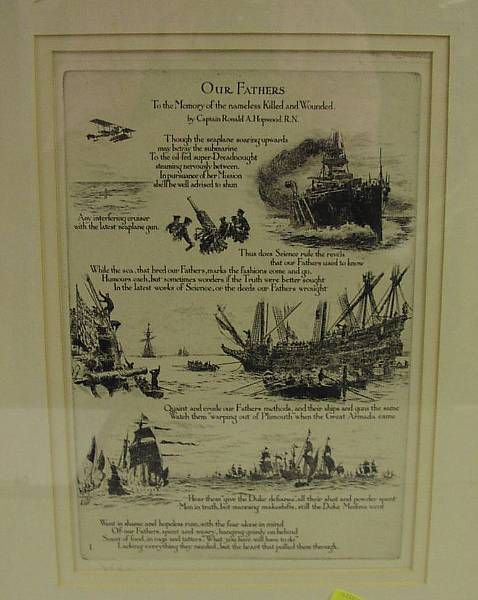 OUR FATHERS
To the Memory of the nameless Killed and Wounded
by Captain Ronald A. Hopwood, R.N.
Though the seaplane soaring upwards
may betray the submarine
To the oil-fed super-Dreadnought
steaming nervously between,
In pursuance of her Mission
she'll be well advised to shun
Any interfering cruiser
with the latest seaplane gun.
Thus does Science rule the revels
that our Fathers used to know
While the sea, that bred our Fathers, marks the fashions come and go.
Humours each, but sometimes wonders if the Truth were better sought
In the latest works of Science, or the deeds our Fathers wrought
Quaint and crude our Fathers' methods, and their ships and guns the same
Watch them warping out of Plymouth when the Great Armada came
Hear them give the Duke defiance, all their shot and powder spent
Men in truth, but manning makeshifts, still the Duke Medina went
Went in shame and hopeless ruin, with the fear alone in mind
Of our Fathers, spent and weary, hanging grimly on behind
Scant of food, in rags and tatters, "What you have will have to do"
Lacking everything they needed, but the heart that pulled them through.
1.